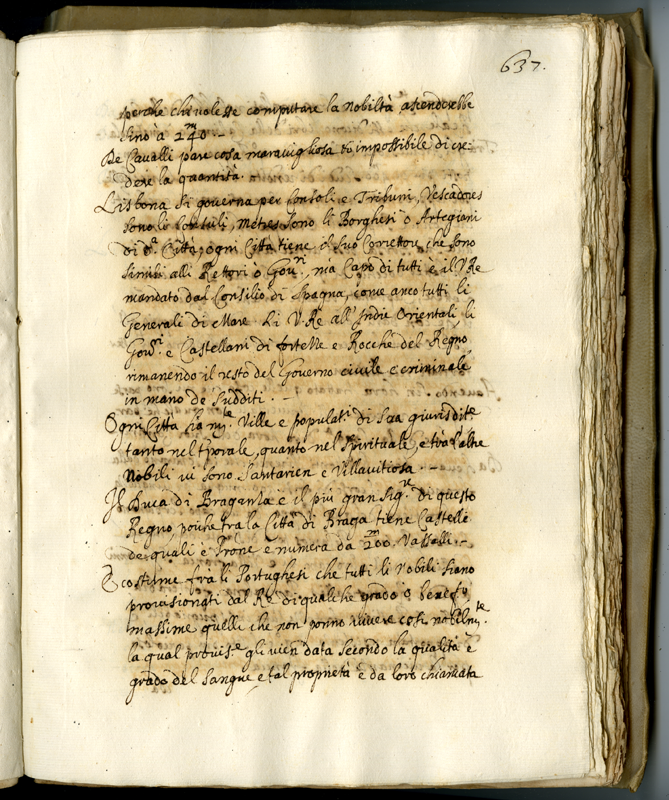 637.
perche chi volesse computare la nobiltà, ascenderebbe
sino à 240 -
De Cavalli pare cosa maravigliosa et impossibile di cre:
dere la quantità.
Lisbona si governa per Consoli e Tribuni, Vescadores
sono li Consuli, Metres sono li Borghesi ò Artegiani
di d.ª Città, ogni Città tiene il suo Coriettor, che sono
simili alli Rettori o Gov.ri, mà Capo di tutti è il V Re
mandato dal Consilio di Spagna, come anco tutti li
Generali di Mare Li V. Re all'Indie Orientali, li
Gov.ri e Castellani di fortezze e Rocche del Regno
rimanendo il resto del Governo civile e criminale
in mano de Sudditi. -
Ogni Città hà m.te Ville e populat.i di sua giurisdit.e
tanto nel tporale, quanto nel spirituale, e trà l'altre
Nobili vi sono Santarien e Villavitiosa. -
Il Duca di Braganza è il più gran Sig.re di questo
Regno, poiche frà la Città di Braga tiene Castelle
de quali è Prone e numera da 200 Vassalli. -
È costume frà li Portughesi che tutti li Nobili siano
provisionati dal Rè di qualche grado ò
massime quelli che non ponno vivere così nobilm.te
la qual provis.e gli vien data secondo la qualità e
grado del sangue e tal proprietà è da loro chiamata